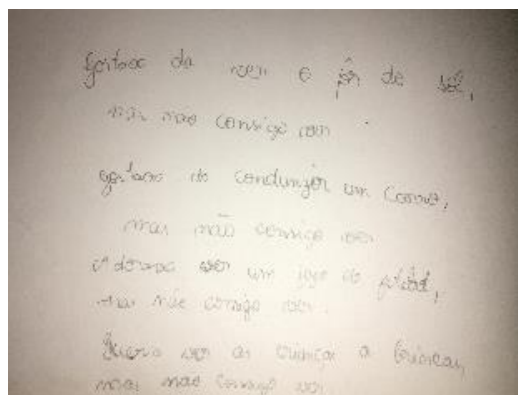 Gostava da ver o pôr de sol,
mas não consigo ver
gostava de condunzir um carro,
mas não consigo ver
Adorava ver um jogo de futebol,
mas não consigo ver.
Quero ver as crianças a brincar,
mas não consigo ver.